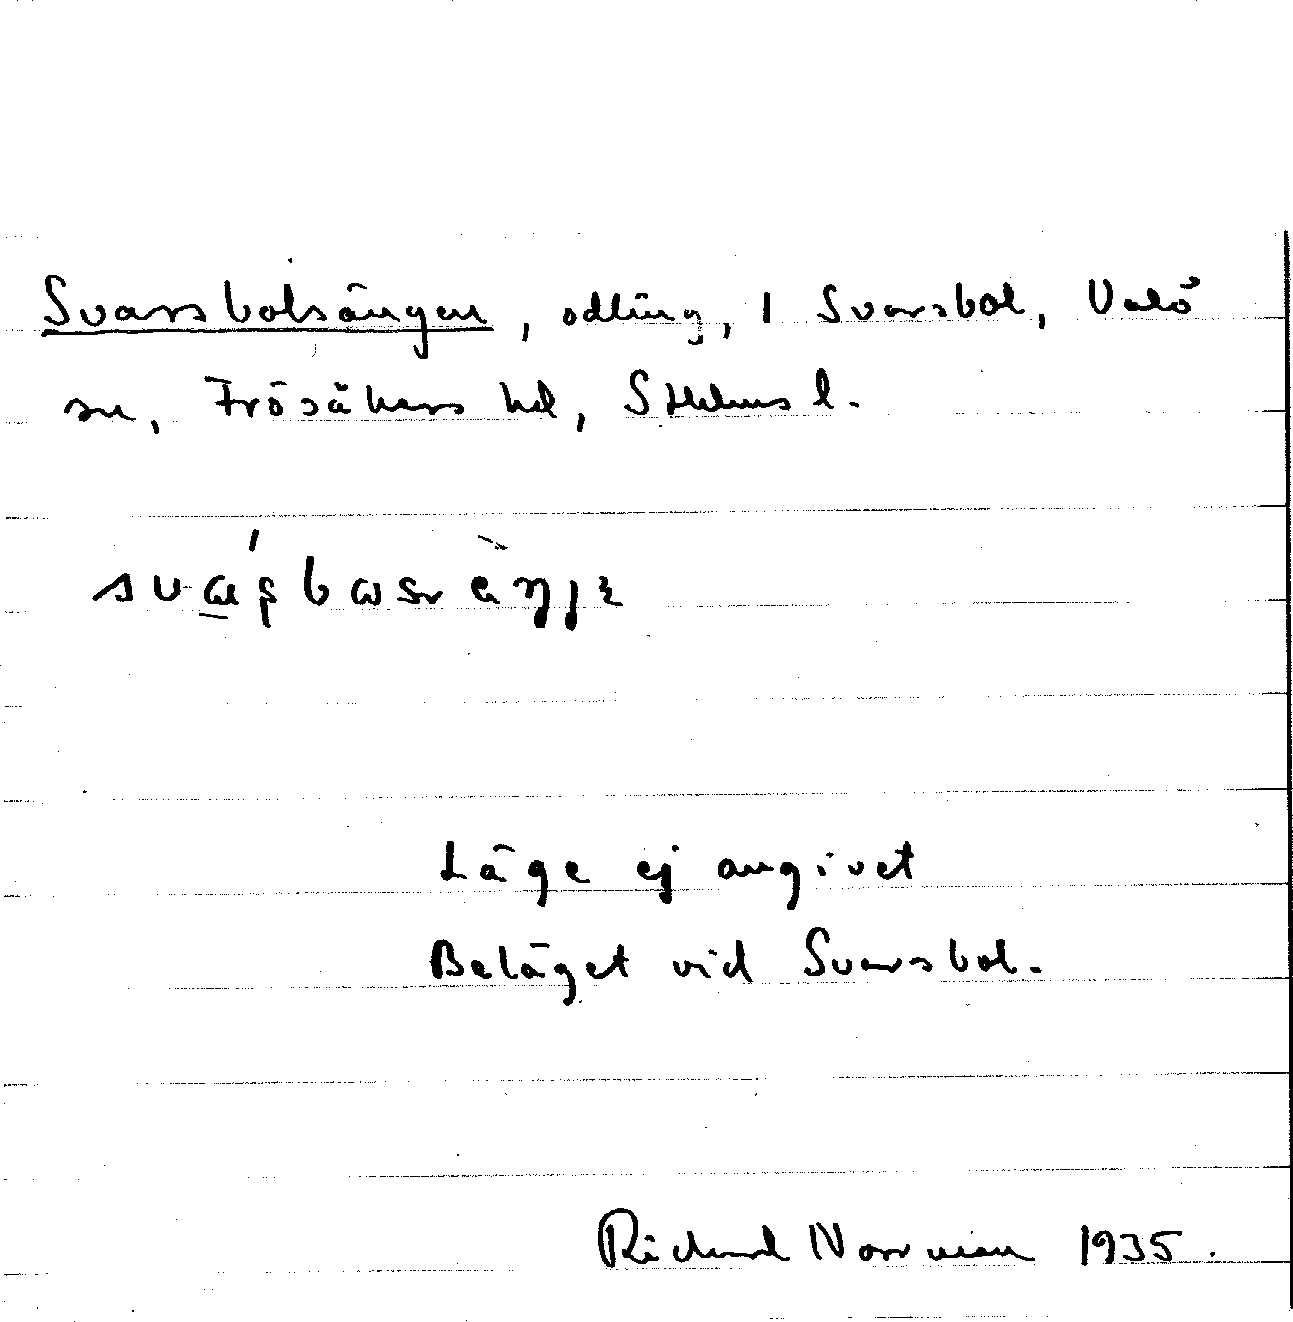 Svarsbolsängen, odling, 1 Svarsbol, Valö
sn, Frösåkers hd, Sthlms l.
Läge ej angivet
Beläget vid Svarsbol.
Richard Norrman 1935.